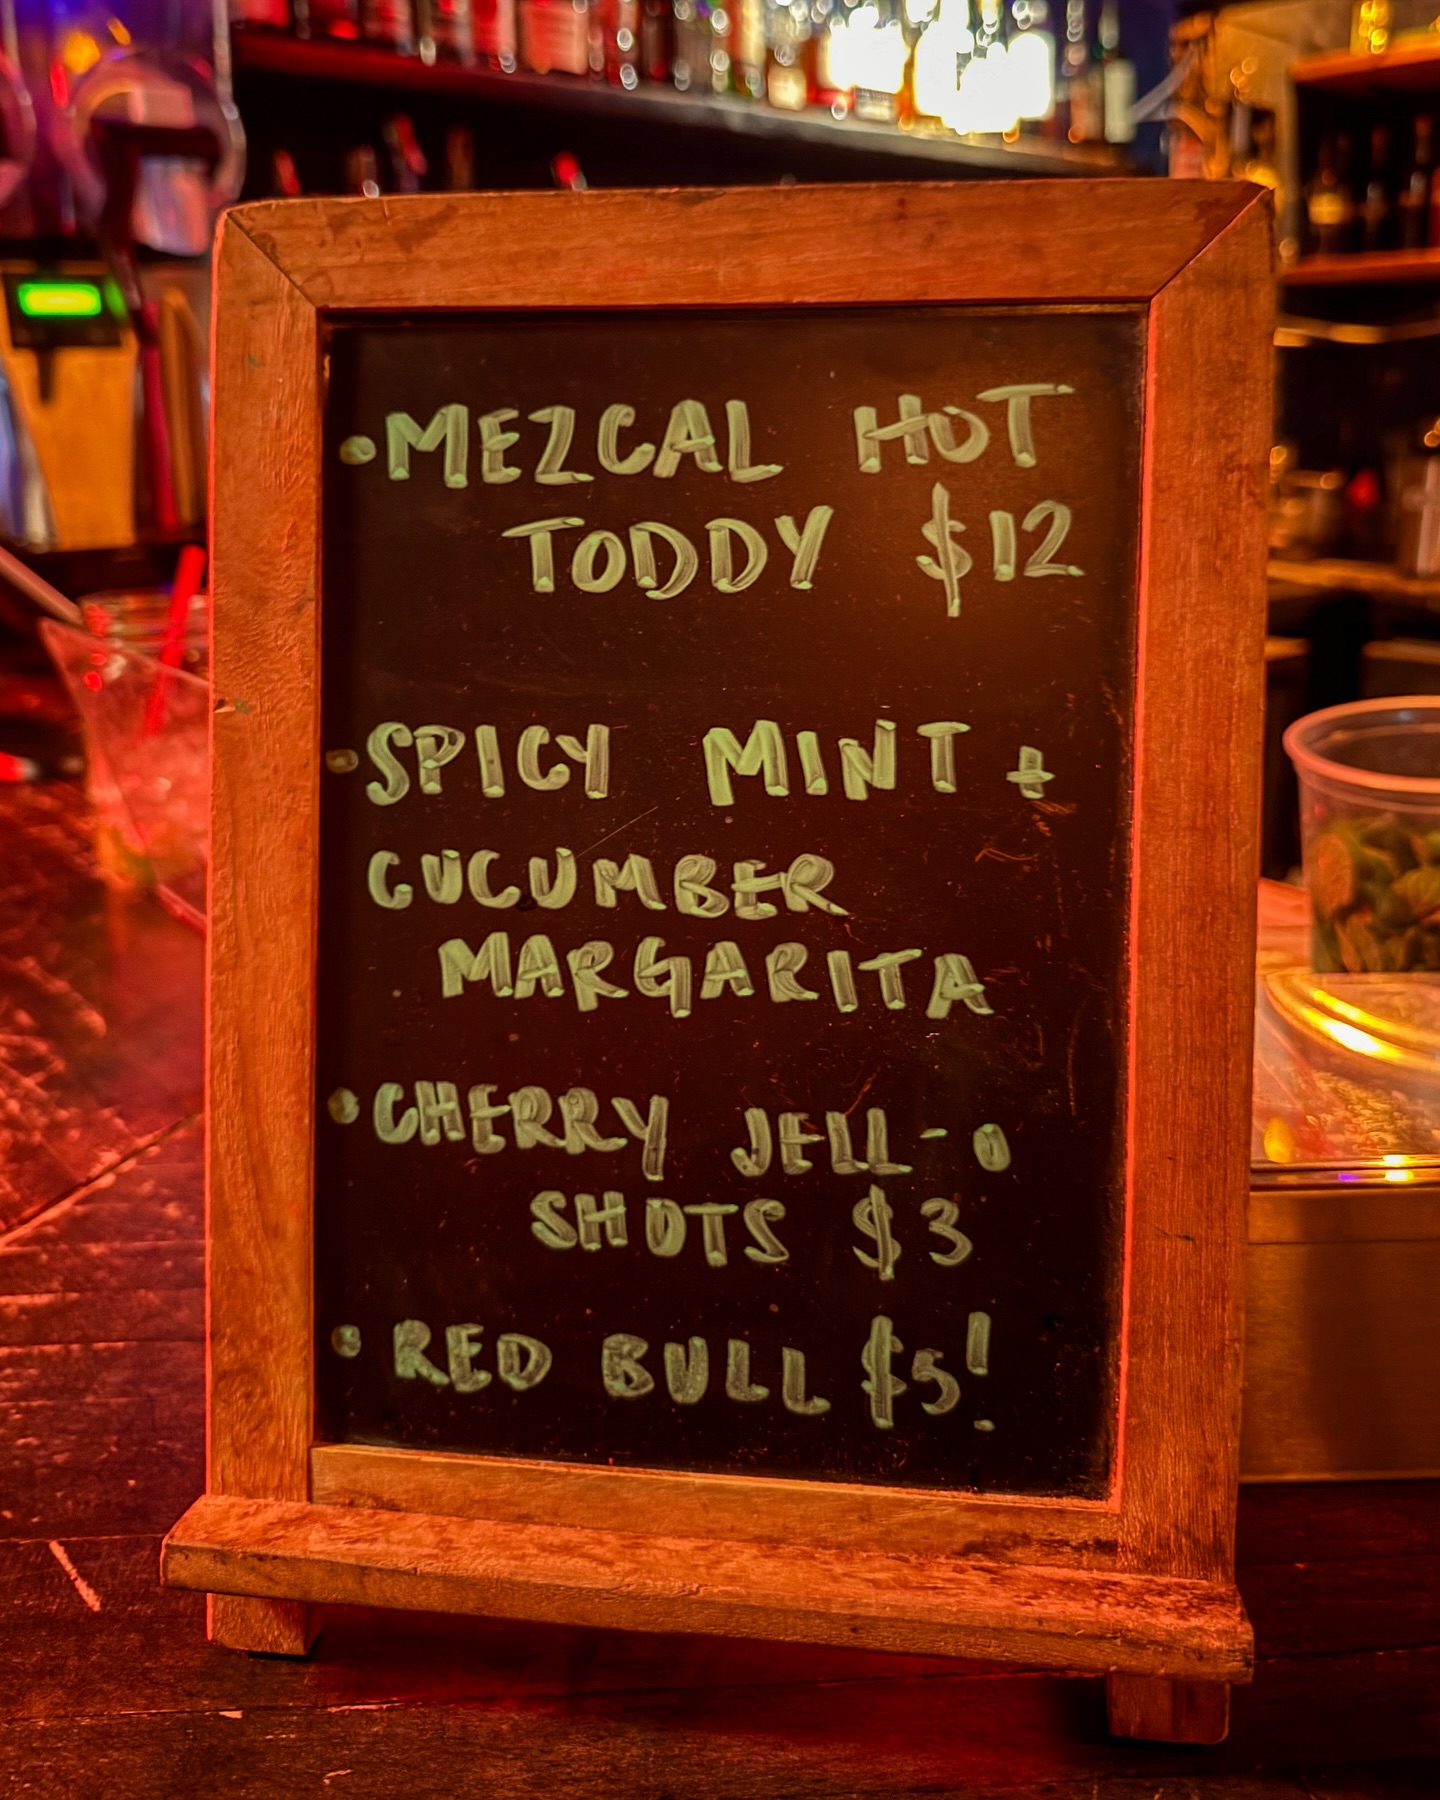 •MEZCAL HOT
TODDY $12
•SPICY MINT +
CUCUMBER
MARGARITA
•CHERRY JELL-O
SHOTS $3
•RED BULL $5!